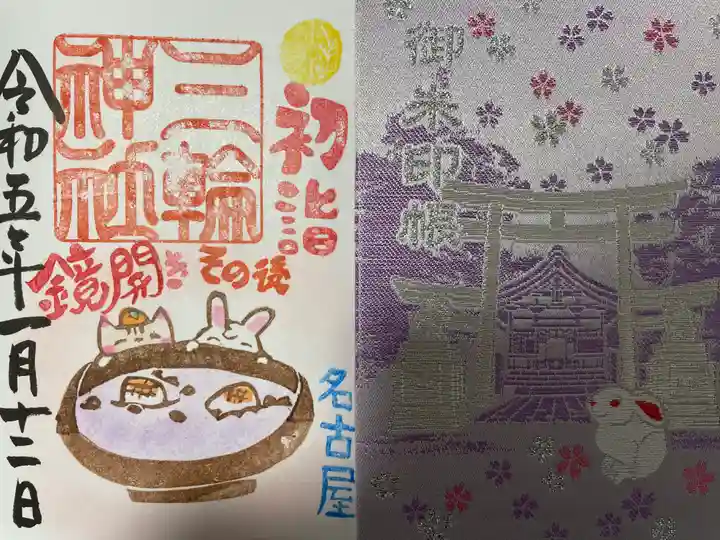 初詣
三輪
神社
鏡開き その後
名古屋
令和五年一月十二日
御朱印帳